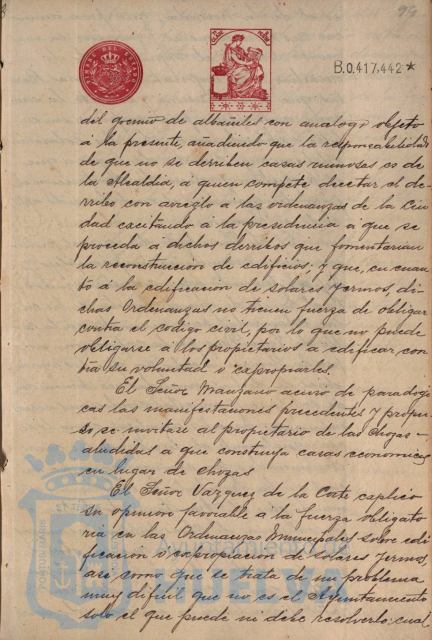 94
TIMBRE DEL ESTADO
B.0.417.442*
del gremio de albañiles con analogo objeto
á la presente, añadiendo que la responsabilidad
de que no se derriben casas ruinosas es de
la Alcaldía, á quien compete decretar el de-
rribo con arreglo á las ordenanzas de la Ciu
dad excitando á la presidencia á que se
proceda á dichos derribos que fomentarian
la reconstruccion de edificios; y que, en cuan
to á la edificacion de solares yermos, di-
chas Ordenanzas no tienen fuerza de obligar
contra el codigo civil, por lo que no puede
obligarse á los propietarios a edificar con
tra su voluntad ó expropiarles.
El Señor Manzano acusó de paradogi
cas las manifestaciones precedentes y propu
so, se invitase al propietario de las chozas
aludidas a que construya casas economicas
en lugar de chozas
El Señor Vazquez de la Corte explicó
su opinion favorable á la fuerza obligato
ria en las Ordenanzas Municipales sobre edi
ficacion ó expropiacion de solares yermos,
asi como que se trata de un problema
muy dificil que no es el Ayuntamiento
solo el que puede ni debe resolverlo; cual
HUELVA